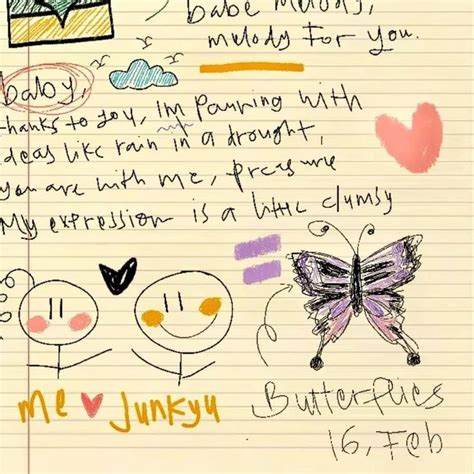 babe melody,
melody for you.
baby,
thanks to you, Im pouring with
ideas like rain in a drought,
you are with me, pressure
My expression is a little clumsy
me Junkyu
Butterflies
16, Feb